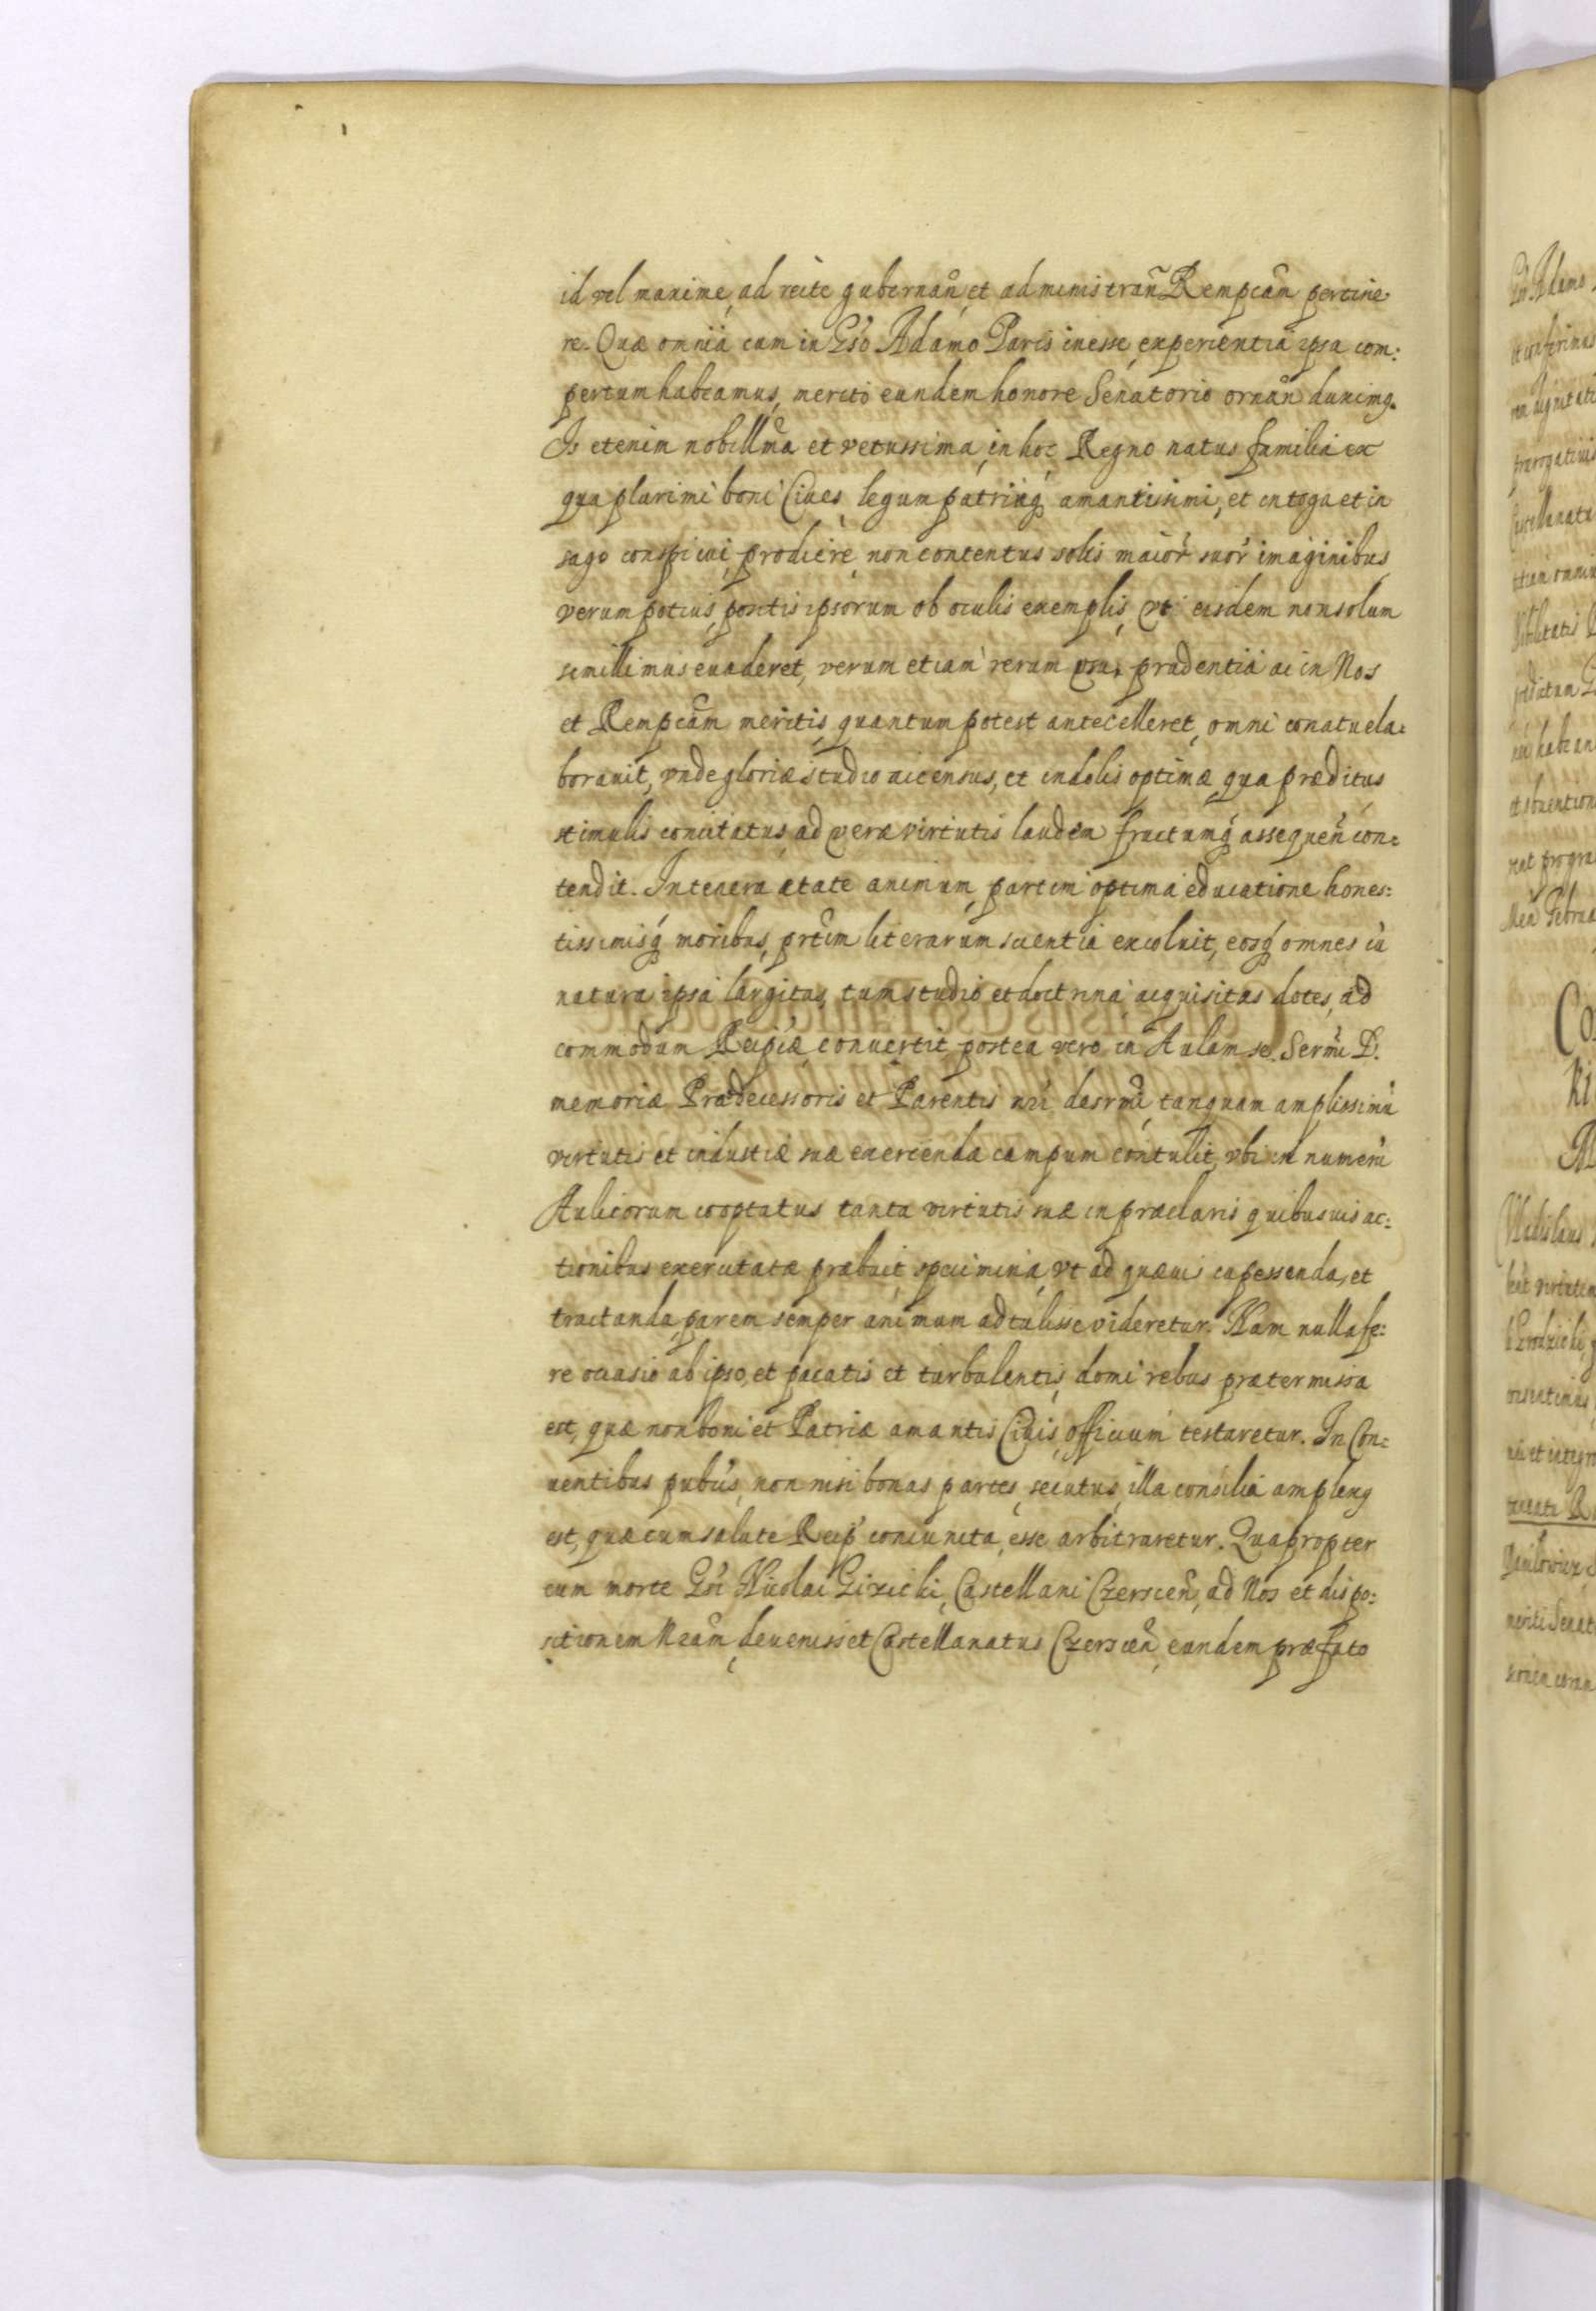 id vel maxime, ad recte gubernañ, et administrañ Rempcam pertine
re. Quæ omnia cum in Gso Adamo Paris inesse, experientia ipsa com:
pertum habeamus, merito eundem honore Senatorio ornañ duximq.
Is etenim nobillma et vetussima, in hoc Regno natus familia ex
qua plurimi boni Ciues, legum patriæq amantissimi, et in toga et in
sago conspicui, prodiere, non contentus solis maior suor imaginibus,
verum potius, positis ipsorum ob oculis exemplis, vt eisdem non solum
simillimus euaderet, verum etiam rerum vsu, prudentia ac in Nos
et Rempcam meritis, quantum potest antecelleret, omni conatu ela:
borauit, vnde gloriæ studio accensus, et indolis optimæ, qua præditus
stimulis concitatus, ad veræ virtutis laudem fructumq assequeñ con:
tendit. In tenera ætate animum, partim optima educatione hones:
tissimisq moribus, prtim literarum scientia excoluit, eosq omnes cu
natura ipsa largitas, tum studio et doctrina acquisitas dotes, ad
commodum Reipcæ, conuertit postea vero in Aulam se Sermi D.
memoriæ Prædecessoris et Parentis nri desrmi, tanquam amplissimu
virtutis et industiæ suæ exercendæ campum contulit, vbi in numeru
Aulicorum cooptatus tanta virtutis suæ in præclaris quibusuis ac:
tionibus exercitatæ præbuit, specimina, vt ad quæuis capessenda, et
tractanda, parem semper animum adtulisse videretur. Nam nulla fe:
re occasio ab ipso, et pacatis et turbulentis, domi rebus prætermissa
est, quæ non boni et Patriæ amantis Ciuis, officium testaretur. In Con:
uentibus publis, non nisi bonas partes, secutus, illa consilia amplexq
est, quæ cum salute Reip coniuncta, esse arbitraretur. Quapropter
cum morte Gsi Nicolai Gizicki, Castellani Czersceñ, ad Nos et dispo:
sitionem Nram, deuenisset Castellanatus Czersceñ, eundem præfato